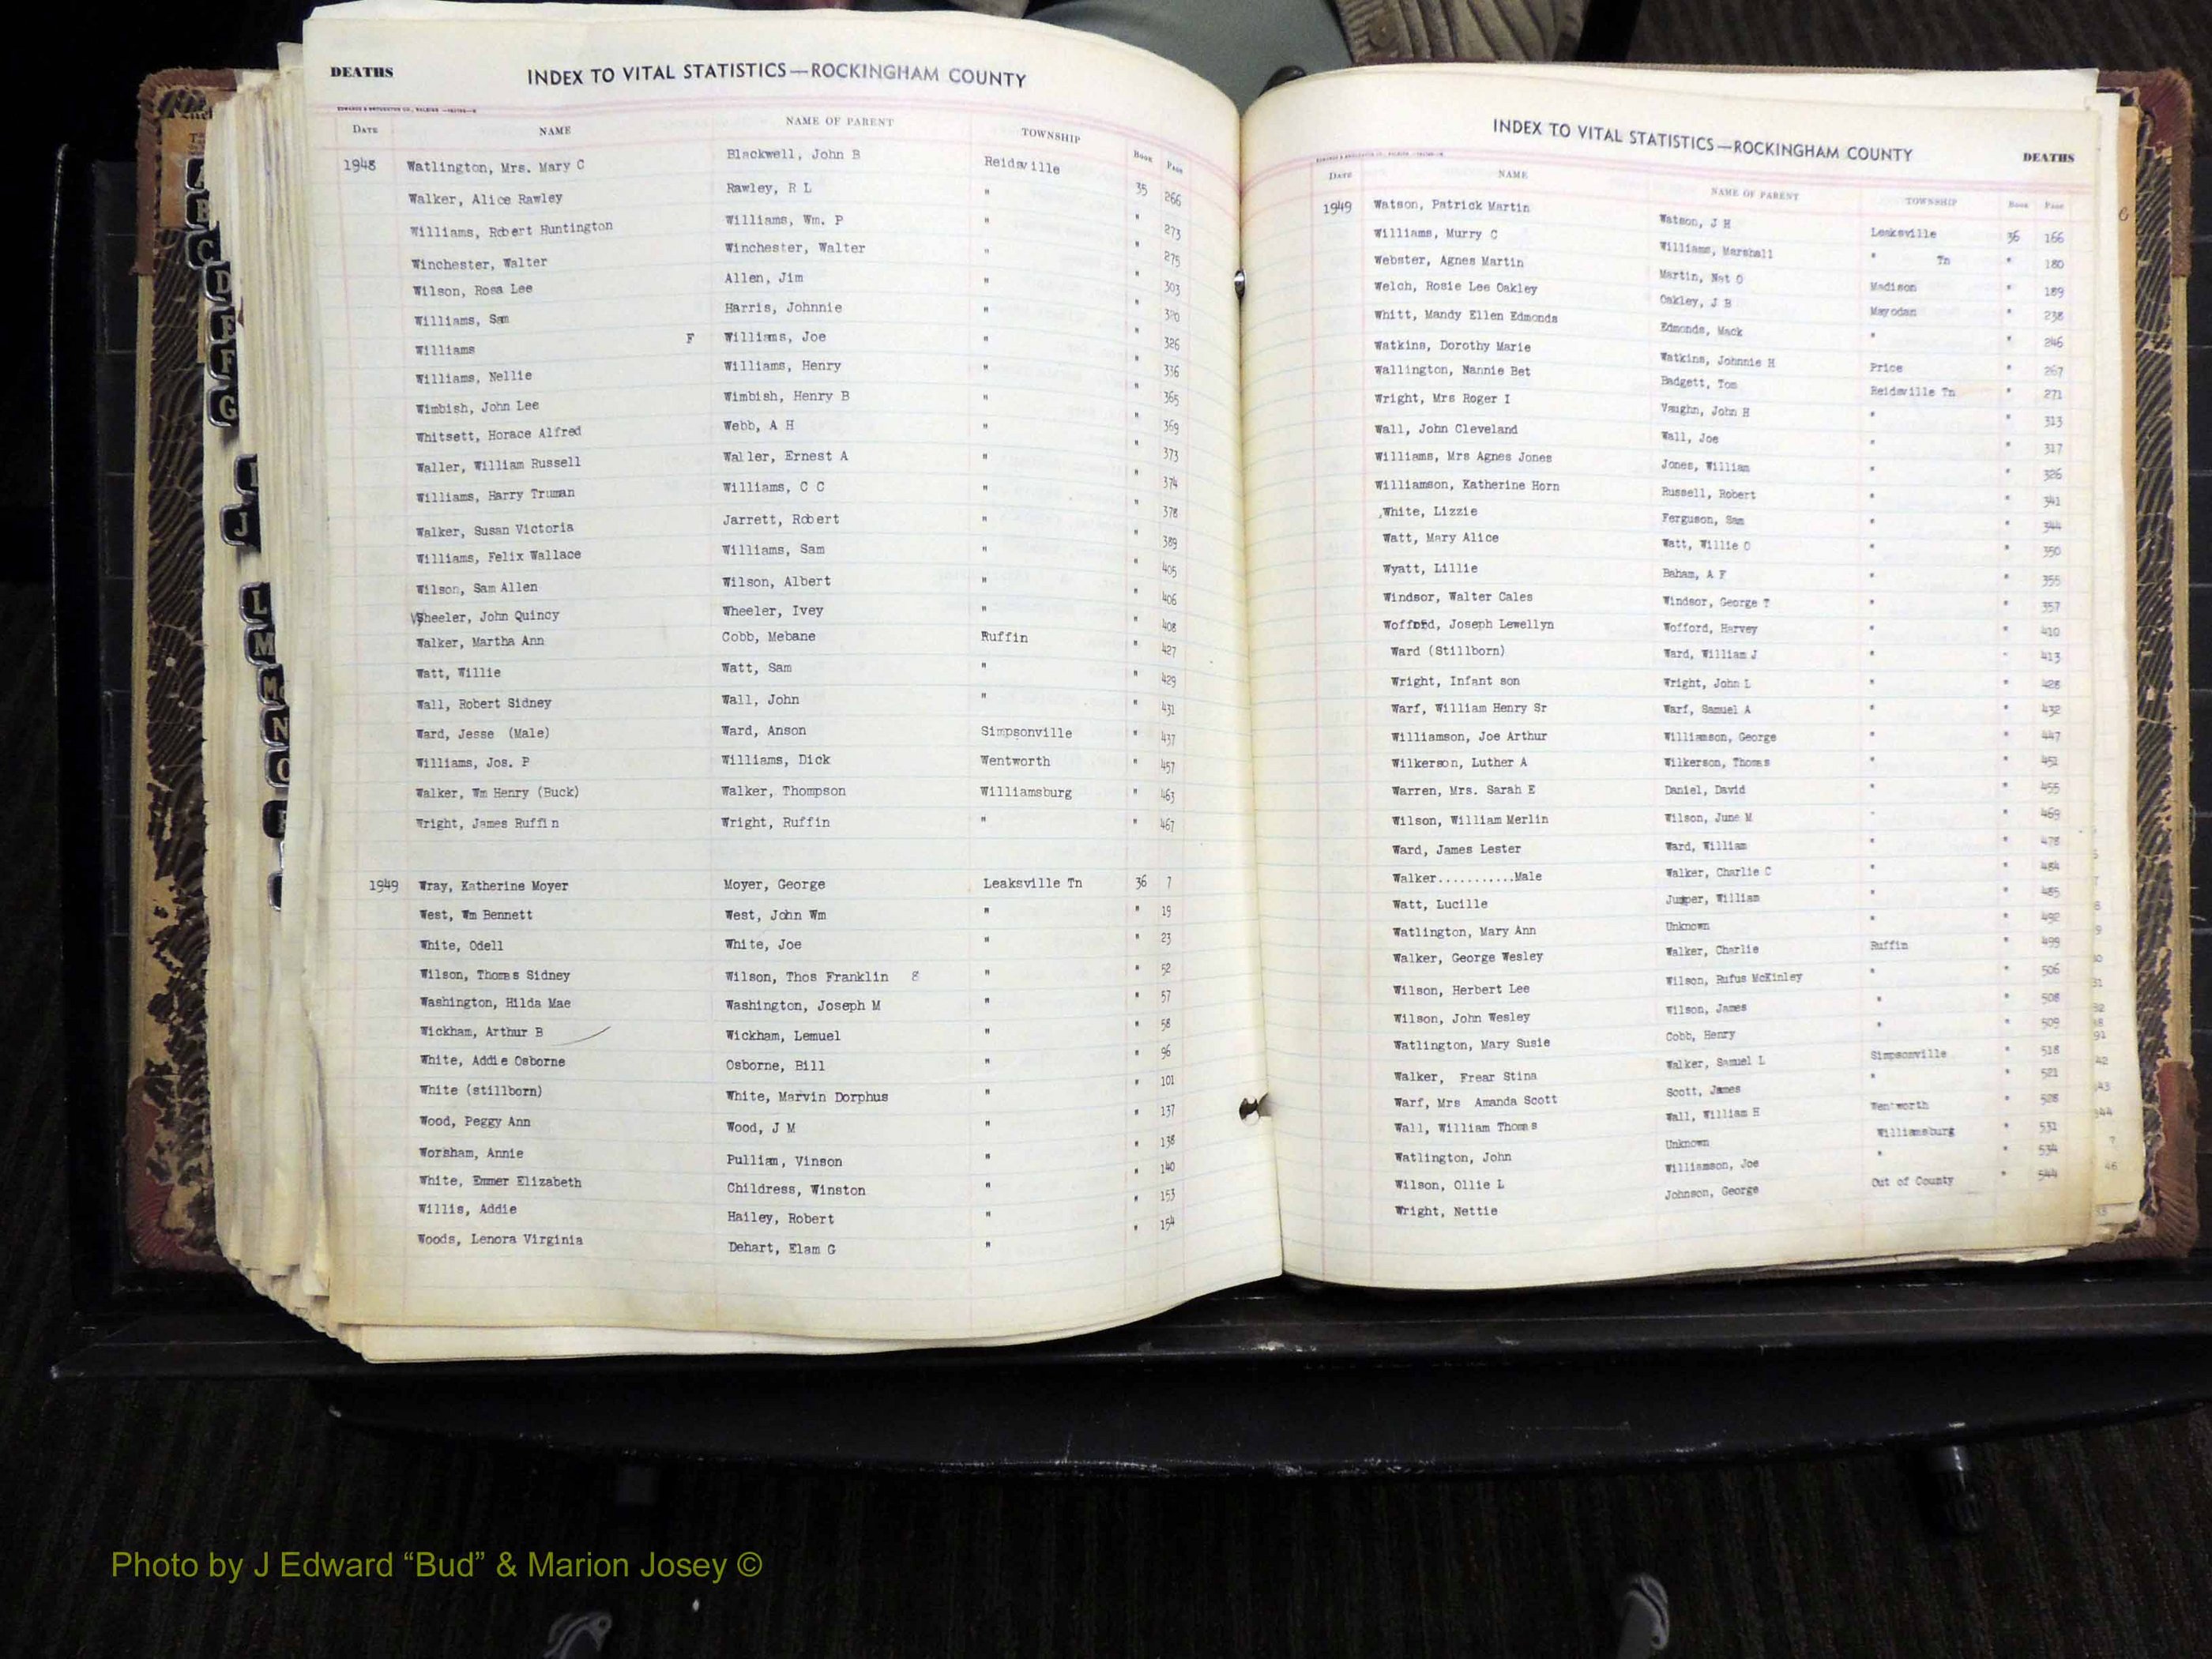 DEATHS
INDEX TO VITAL STATISTICS—ROCKINGHAM COUNTY
DATE NAME NAME OF PARENT TOWNSHIP Book Page
1948 Watlington, Mrs. Mary C Blackwell, John B Reidsville 35 266
Walker, Alice Rawley Rawley, R L " " 273
Williams, Robert Huntington Williams, Wm. P " " 275
Winchester, Walter Winchester, Walter " " 303
Wilson, Rosa Lee Allen, Jim " "
Williams, Sam Harris, Johnnie " " 326
Williams F Williams, Joe " " 336
Williams, Nellie Williams, Henry " " 365
Wimbish, John Lee Wimbish, Henry B " " 369
Whitsett, Horace Alfred Webb, A H " " 373
Waller, William Russell Waller, Ernest A " " 374
Williams, Harry Truman Williams, C C " " 378
Walker, Susan Victoria Jarrett, Robert " " 389
Williams, Felix Wallace Williams, Sam " " 405
Wilson, Sam Allen Wilson, Albert " " 406
Wheeler, John Quincy Wheeler, Ivey " " 408
Walker, Martha Ann Cobb, Mebane Ruffin " 427
Watt, Willie Watt, Sam " " 429
Wall, Robert Sidney Wall, John " " 431
Ward, Jesse (Male) Ward, Anson Simpsonville " 437
Williams, Jos. P Williams, Dick Wentworth " 457
Walker, Wm Henry (Buck) Walker, Thompson Williamsburg " 463
Wright, James Ruffin Wright, Ruffin " " 467
1949 Wray, Katherine Moyer Moyer, George Leaksville Tn 36 7
West, Wm Bennett West, John Wm " " 19
White, Odell White, Joe " " 23
Wilson, Thomas Sidney Wilson, Thos Franklin 8 " " 52
Washington, Hilda Mae Washington, Joseph M " " 57
Wickham, Arthur B Wickham, Lemuel " " 58
White, Addie Osborne Osborne, Bill " " 96
White (stillborn) White, Marvin Dorphus " " 101
Wood, Peggy Ann Wood, J M " " 137
Worsham, Annie Pulliam, Vinson " " 138
White, Emmer Elizabeth Childress, Winston " " 140
Willis, Addie Hailey, Robert " " 153
Woods, Lenora Virginia Dehart, Elam G " " 154
INDEX TO VITAL STATISTICS—ROCKINGHAM COUNTY
DEATHS
DATE NAME NAME OF PARENT TOWNSHIP Book Page
1949 Watson, Patrick Martin Watson, J H Leaksville 36 166
Williams, Murry C Williams, Marshall " Tn " 180
Webster, Agnes Martin Martin, Nat O Madison " 189
Welch, Rosie Lee Oakley Oakley, J B Mayodan " 238
Whitt, Mandy Ellen Edmonds Edmonds, Mack " " 246
Watkins, Dorothy Marie Watkins, Johnnie H Price " 267
Wallington, Nannie Bet Badgett, Tom Reidsville Tn " 271
Wright, Mrs Roger I Vaughn, John H " " 313
Wall, John Cleveland Wall, Joe " " 317
Williams, Mrs Agnes Jones Jones, William " " 326
Williamson, Katherine Horn Russell, Robert " " 341
White, Lizzie Ferguson, Sam " " 344
Watt, Mary Alice Watt, Willie O " " 350
Wyatt, Lillie Baham, A F " " 355
Windsor, Walter Cales Windsor, George T " " 357
Wofford, Joseph Lewellyn Wofford, Harvey " " 410
Ward (Stillborn) Ward, William J " " 413
Wright, Infant son Wright, John L " " 428
Warf, William Henry Sr Warf, Samuel A " " 432
Williamson, Joe Arthur Williamson, George " " 447
Wilkerson, Luther A Wilkerson, Thomas " " 451
Warren, Mrs. Sarah E Daniel, David " " 455
Wilson, William Merlin Wilson, June M " " 469
Ward, James Lester Ward, William " " 478
Walker...........Male Walker, Charlie C " " 484
Watt, Lucille Jumper, William " " 485
Watlington, Mary Ann Unknown " " 492
Walker, George Wesley Walker, Charlie Ruffin " 499
Wilson, Herbert Lee Wilson, Rufus McKinley " " 506
Wilson, John Wesley Wilson, James " " 508
Watlington, Mary Susie Cobb, Henry " " 509
Walker, Frear Stina Walker, Samuel L Simpsonville " 518
Warf, Mrs Amanda Scott Scott, James " " 521
Wall, William Thomas Wall, William H Wentworth " 528
Watlington, John Unknown Williamsburg " 531
Wilson, Ollie L Williamson, Joe " " 534
Wright, Nettie Johnson, George Out of County " 544
A
B
C
D
E
F
G
I
J
L
M
Mc
N
O
Photo by J Edward “Bud” & Marion Josey ©